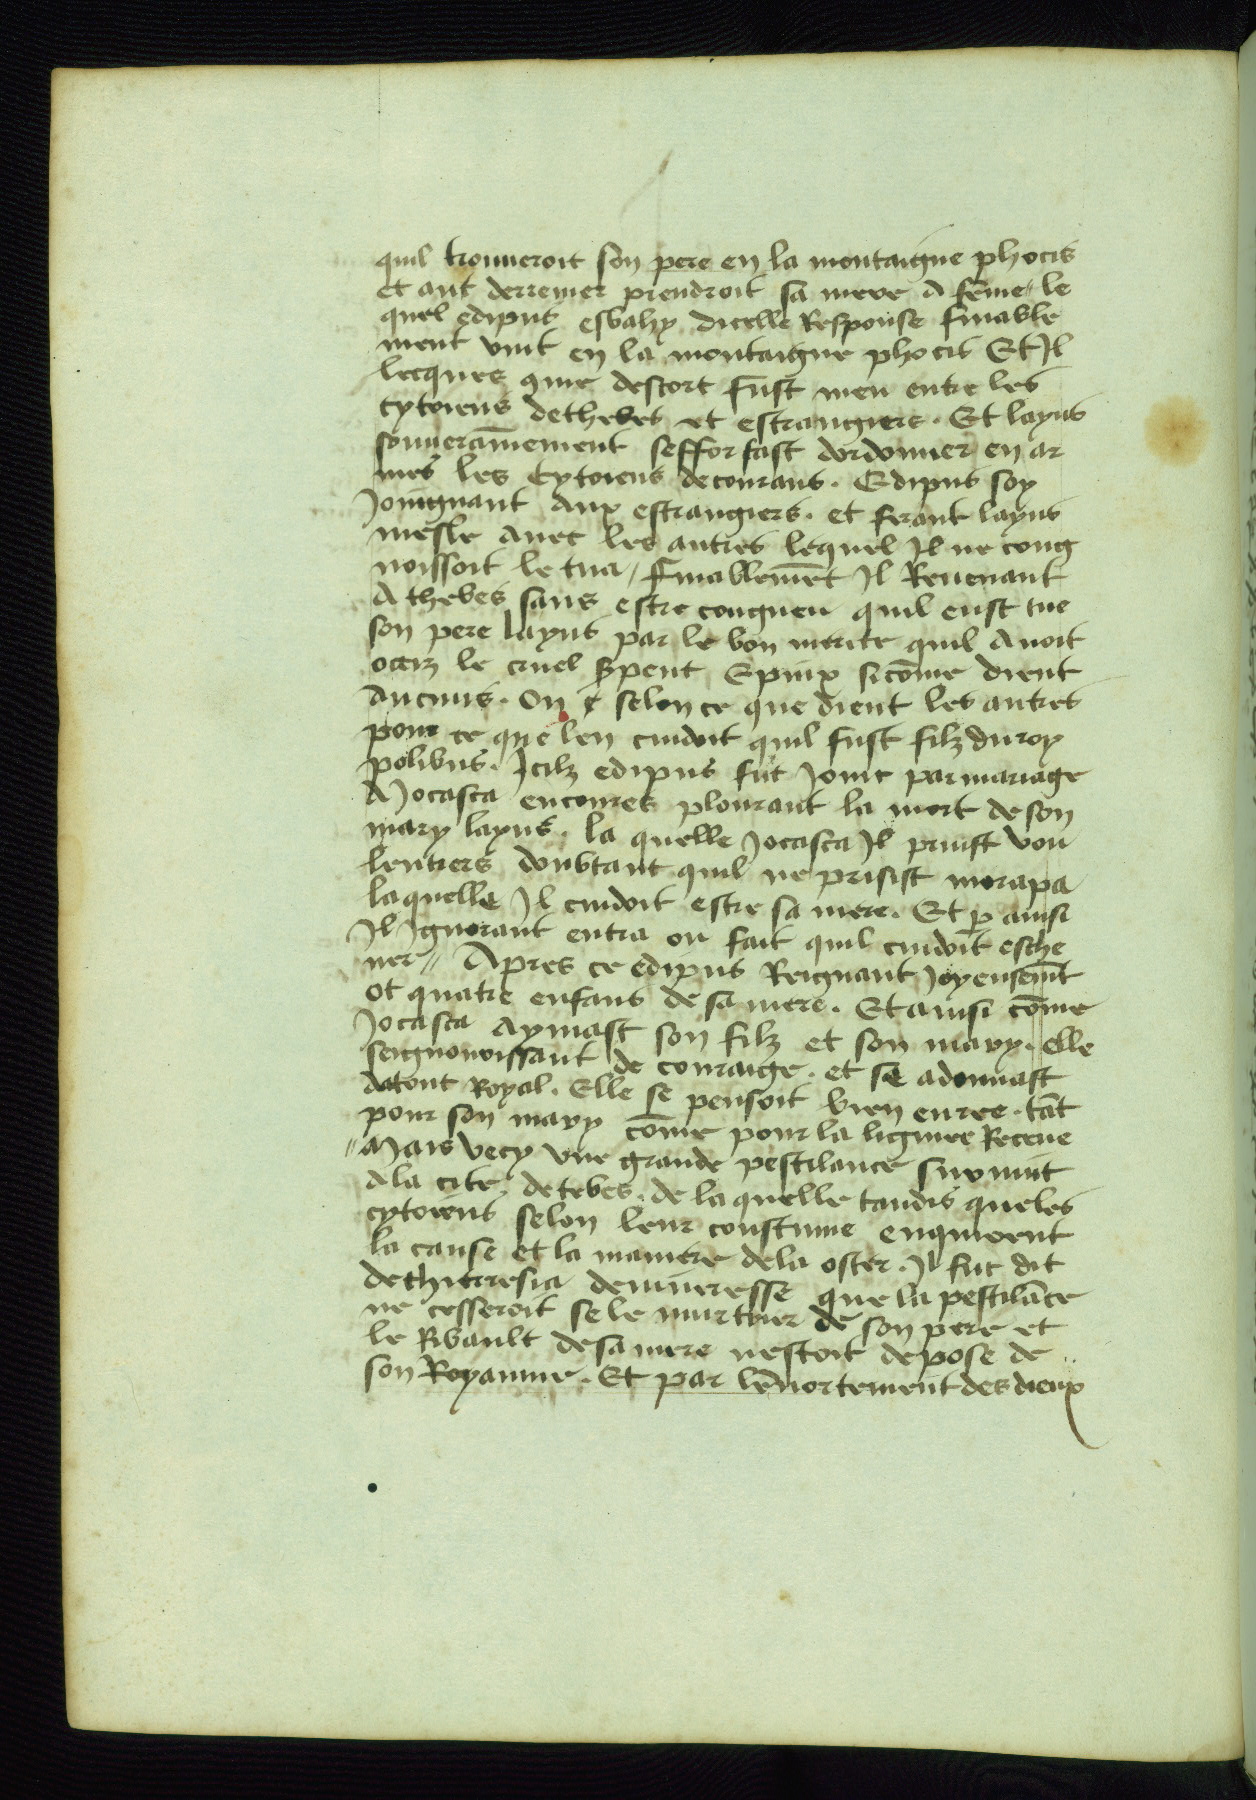 quil trouueroit son pere en la montaigne phocis
et aut derrenier prendroit sa mere a fe͂me / le
quel edipus esbahy dicelle Response finable
ment vint en la montaigne phocis Et Il
lecques q̄me descort fust meu entre les
cytoiens dethebes et estrangiers . Et layus
souuerain̄ement sefforsast dordonner en ar
mes les cytoiens decourans . Edipus soy
Joingnant Aux estrangiers . et ferant layus
mesle auec les autres lequel Il ne cong
noissoit le tua / Finablemēt Il Reuenant
A thebes sans estre congneu quil eust tue
son pere layus par le bon merite quil Auoit
occiz le cruel Spent Spinx sicōme dient
Aucuns . Ou selon ce que dient les autres
pour ce que len cuidoit quil fust filz du roy
polibus . Icilz edipus fut Joint par mariage
A Jocasta encoures plourant la mort de son
mary layus . la quelle Jocasta Il prinst vou
lentiers doubtant quil ne prisist merapa
laquelle Il cuidoit estre sa mere . Et p̱ ainsi
Il Ignorant entra ou fait quil cuidoit esche
uer // Apres ce edipus Reignant Joyeusemēt
ot quatre enfans de sa mere . Et ainsi cōme
Jocasta Aymast son filz et son mary . elle
seignourissant de couraige . et se adonnast
datout Royal . Elle se pensoit bien euree . tāt
pour son mary cōme pour la lignee Receue
// Mais vecy vne grande pestilance suruint
A la cite de tebes . de la quelle tandis que les
cytoiens selon leur coustume enquierent
la cause et la maniere dela oster . Il fut dit
dethiteresia deuineresse que la pestilāce
ne cesseroit se le murtrier de son pere et
le Ribault desa mere nestoit depose de
son Royaume . Et par lēnortement des dieux